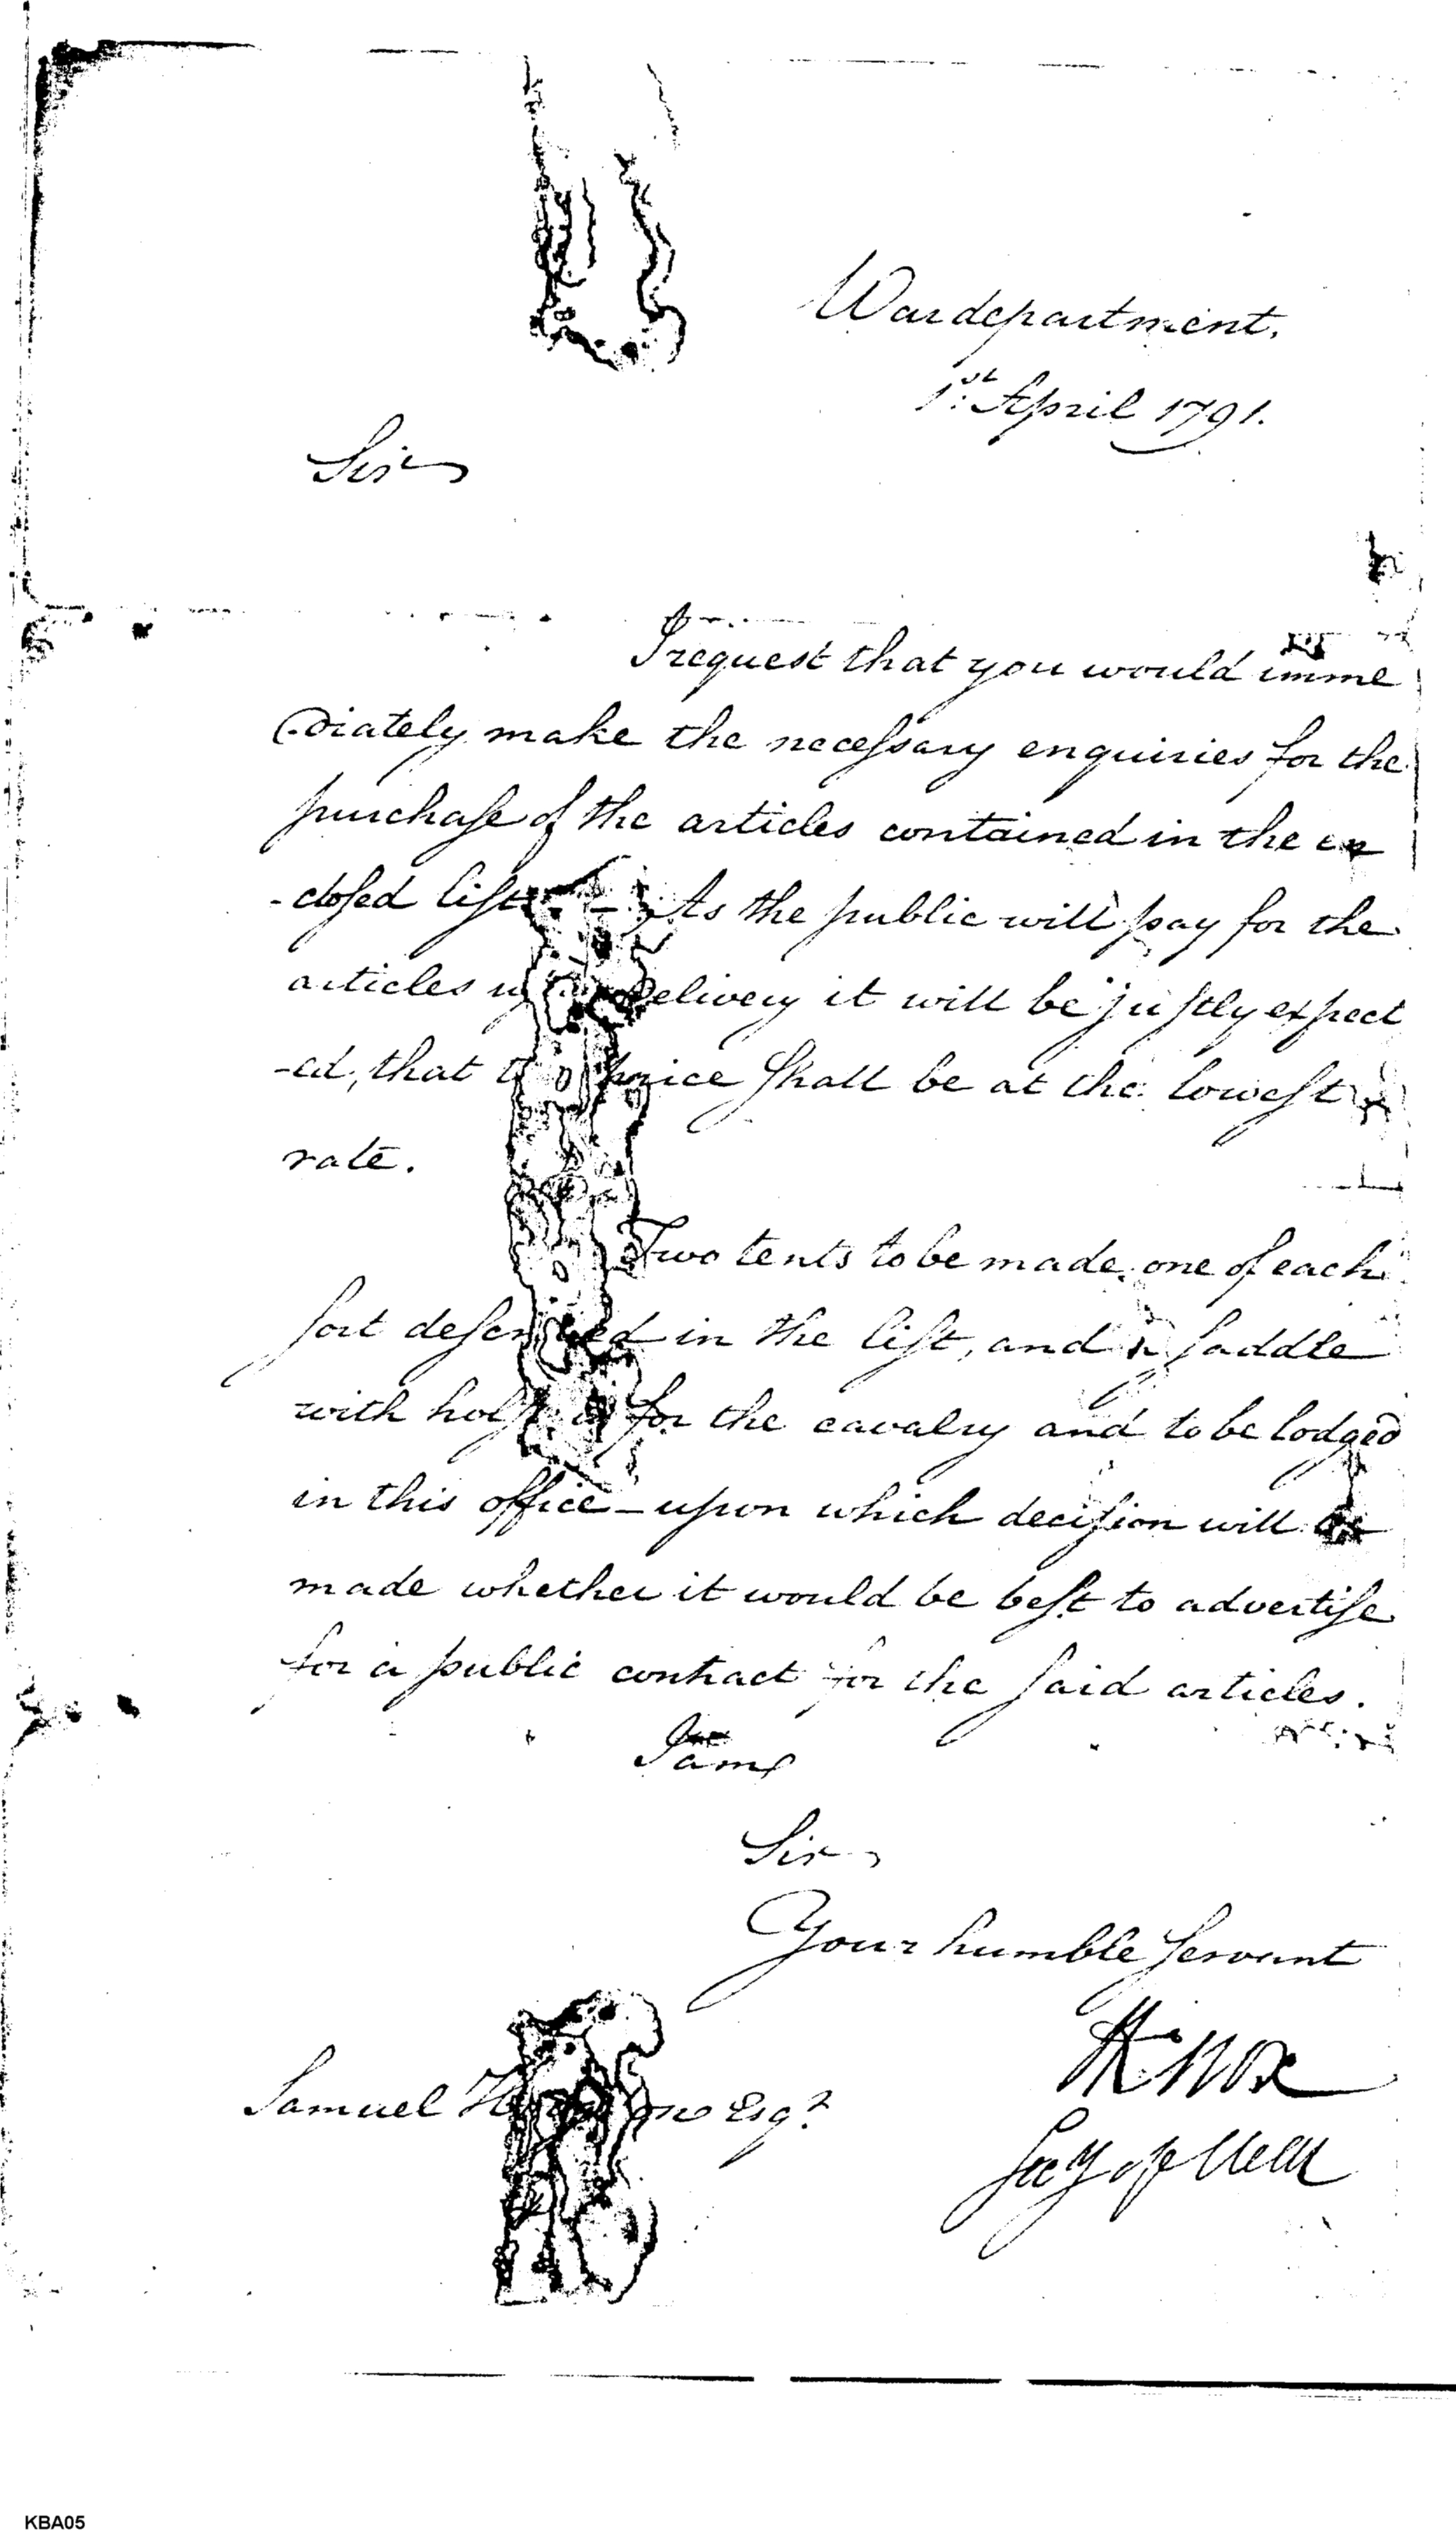 War department,
1st April 1791.
Sir
I request that you would imme
diately make the necessary enquiries for the
purchase of the articles contained in the en
-closed list As the public will pay for the
articles delivery it will be justly expect
-ed, that price shall be at the lowest
rate.
Two tents to be made, one of each
sort described in the list, and a saddle
with for the cavalry and to be lodged
in this office – upon which decision will be
made whether it would be best to advertise
for a public contract for the said articles.
I am
Sir
Your humble Servant
HKnox
Secy of War
Samuel Esqr.
KBA05